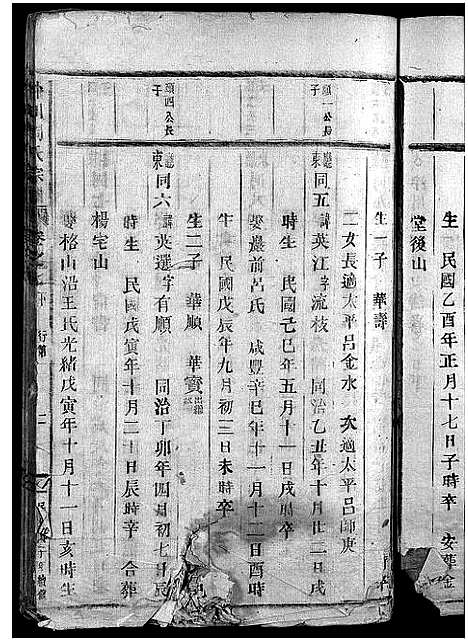 生 民國乙酉年正月十七日子時卒 安葬金
堂後山
生一子 華壽
二女長適太平呂金水 次適太平呂
頭一公長子
東同五諱英江字流枝 同治乙丑年十月廿二日戌
時生 民國己巳年五月十一日戌時卒
娶巖前呂氏 咸豐辛巳年十一月十二日酉時
生 民國戊辰年九月初三日未時卒
生二子 華順 華寶出繼
頭四公長子
東同六諱英選字有順 同治丁卯年四月初七日辰
時生 民國戊寅年十月二十日辰時卒 合葬
楊宅山
娶格山沿王氏光緒戊寅年十月十一日亥時生
行第 二